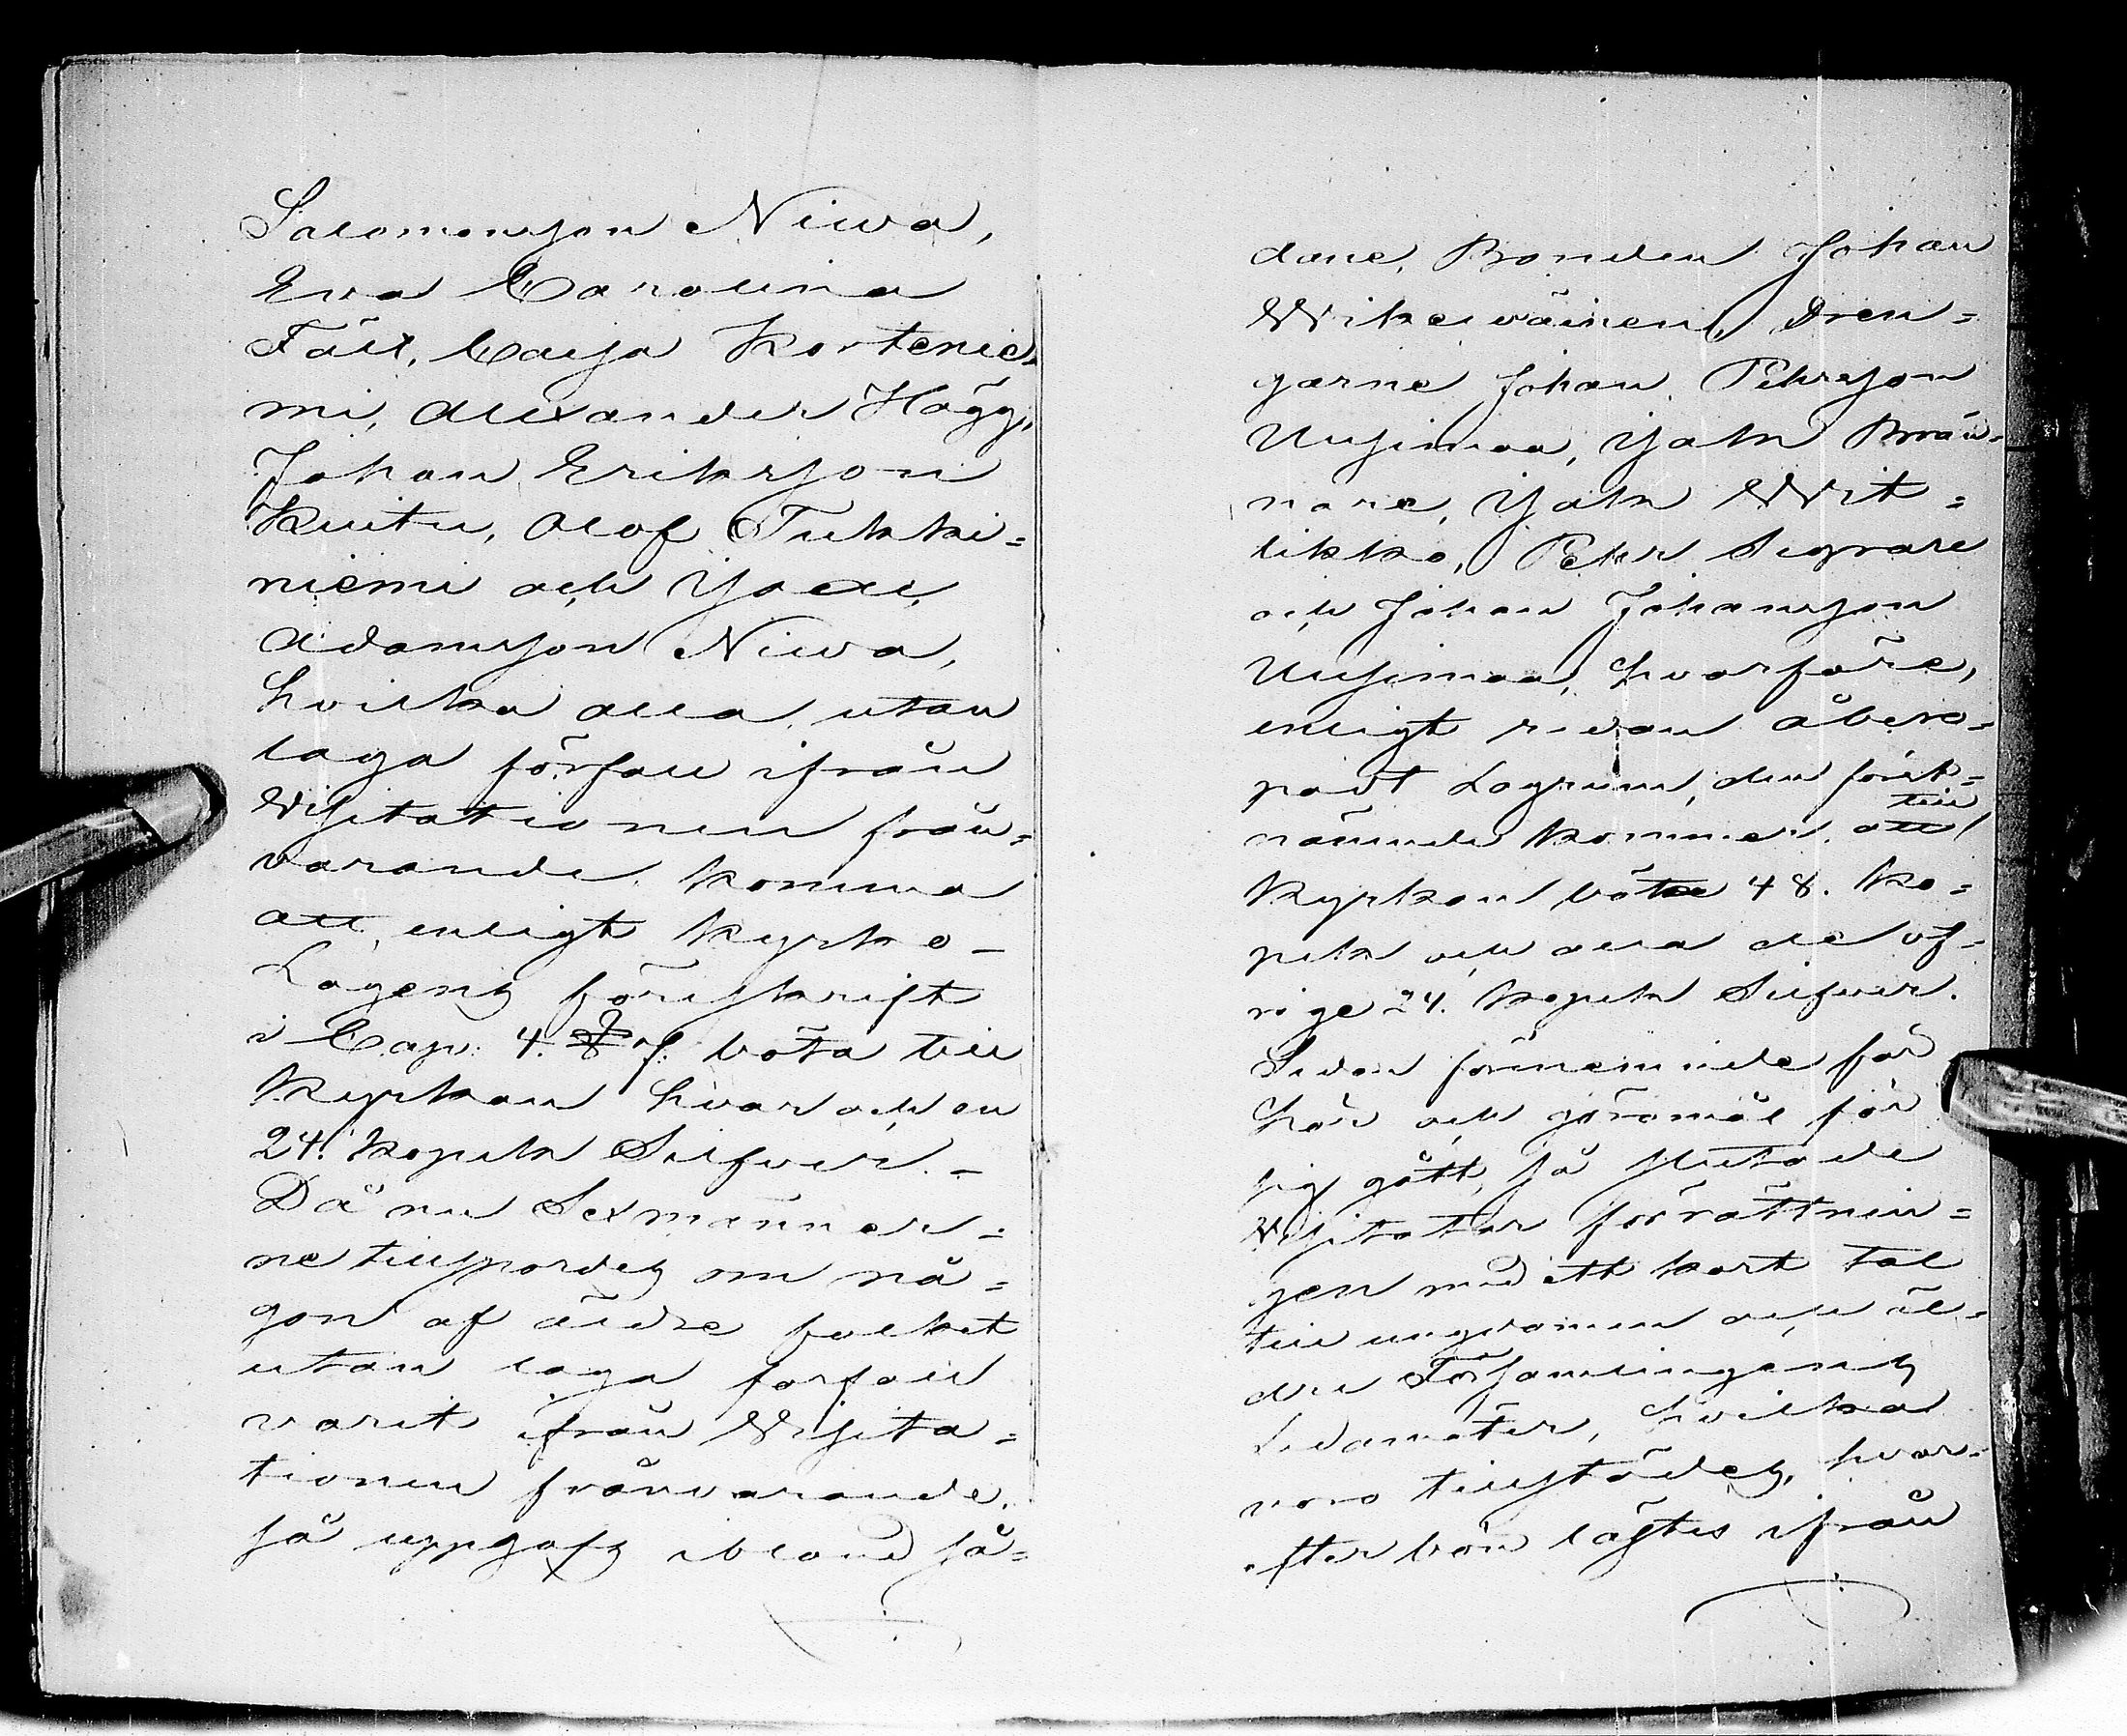 Salomonsson Niwa,
Eva Carolina
Fält, Caisa Kortenie-
mi, Alexander Hägg,
Johan Eriksson
Kuitu, Olof Tukki=
niemi och Joel
Adamsson Niwa,
hvilka alla, utan
laga förfall ifrån
Visitationen från=
varande, komma
att, enligt Kyrko-
Lagens föreskrift
i Cap: 4. böta till
Kyrkan hvar och en
24. kopek Silfver. -
Då nu Sexmänner=
ne tillspordes om nå=
gon af äldre folket
utan laga förfall
varit ifrån Visita=
tionen frånvarande,
så uppgafs ibland så=
dane, Bonden Johan
Wikeväinen, Drän=
garne Johan Pehrsson
Uusimaa, Isak Brän=
nare, Isak Wit=
likko, Pehr Segrare
och Johan Johansson
Uusimaa, hvarföre,
enligt redan åbero=
padt Lagrum, den förct=
nämnde kommer att till
Kyrkan böta 48. Ko=
pek och alla de öf=
rige 24. kopek Silfver.
Sedan förenemnde för
hör och göromål för
sig gått, så slutade
Visitator förrättnin=
gen med ett kort tal
till ungdomen och äl=
dre Församlingens
Ledamöter, hvilka
voro tillstädes, hvar=
efter bön lästes ifrån